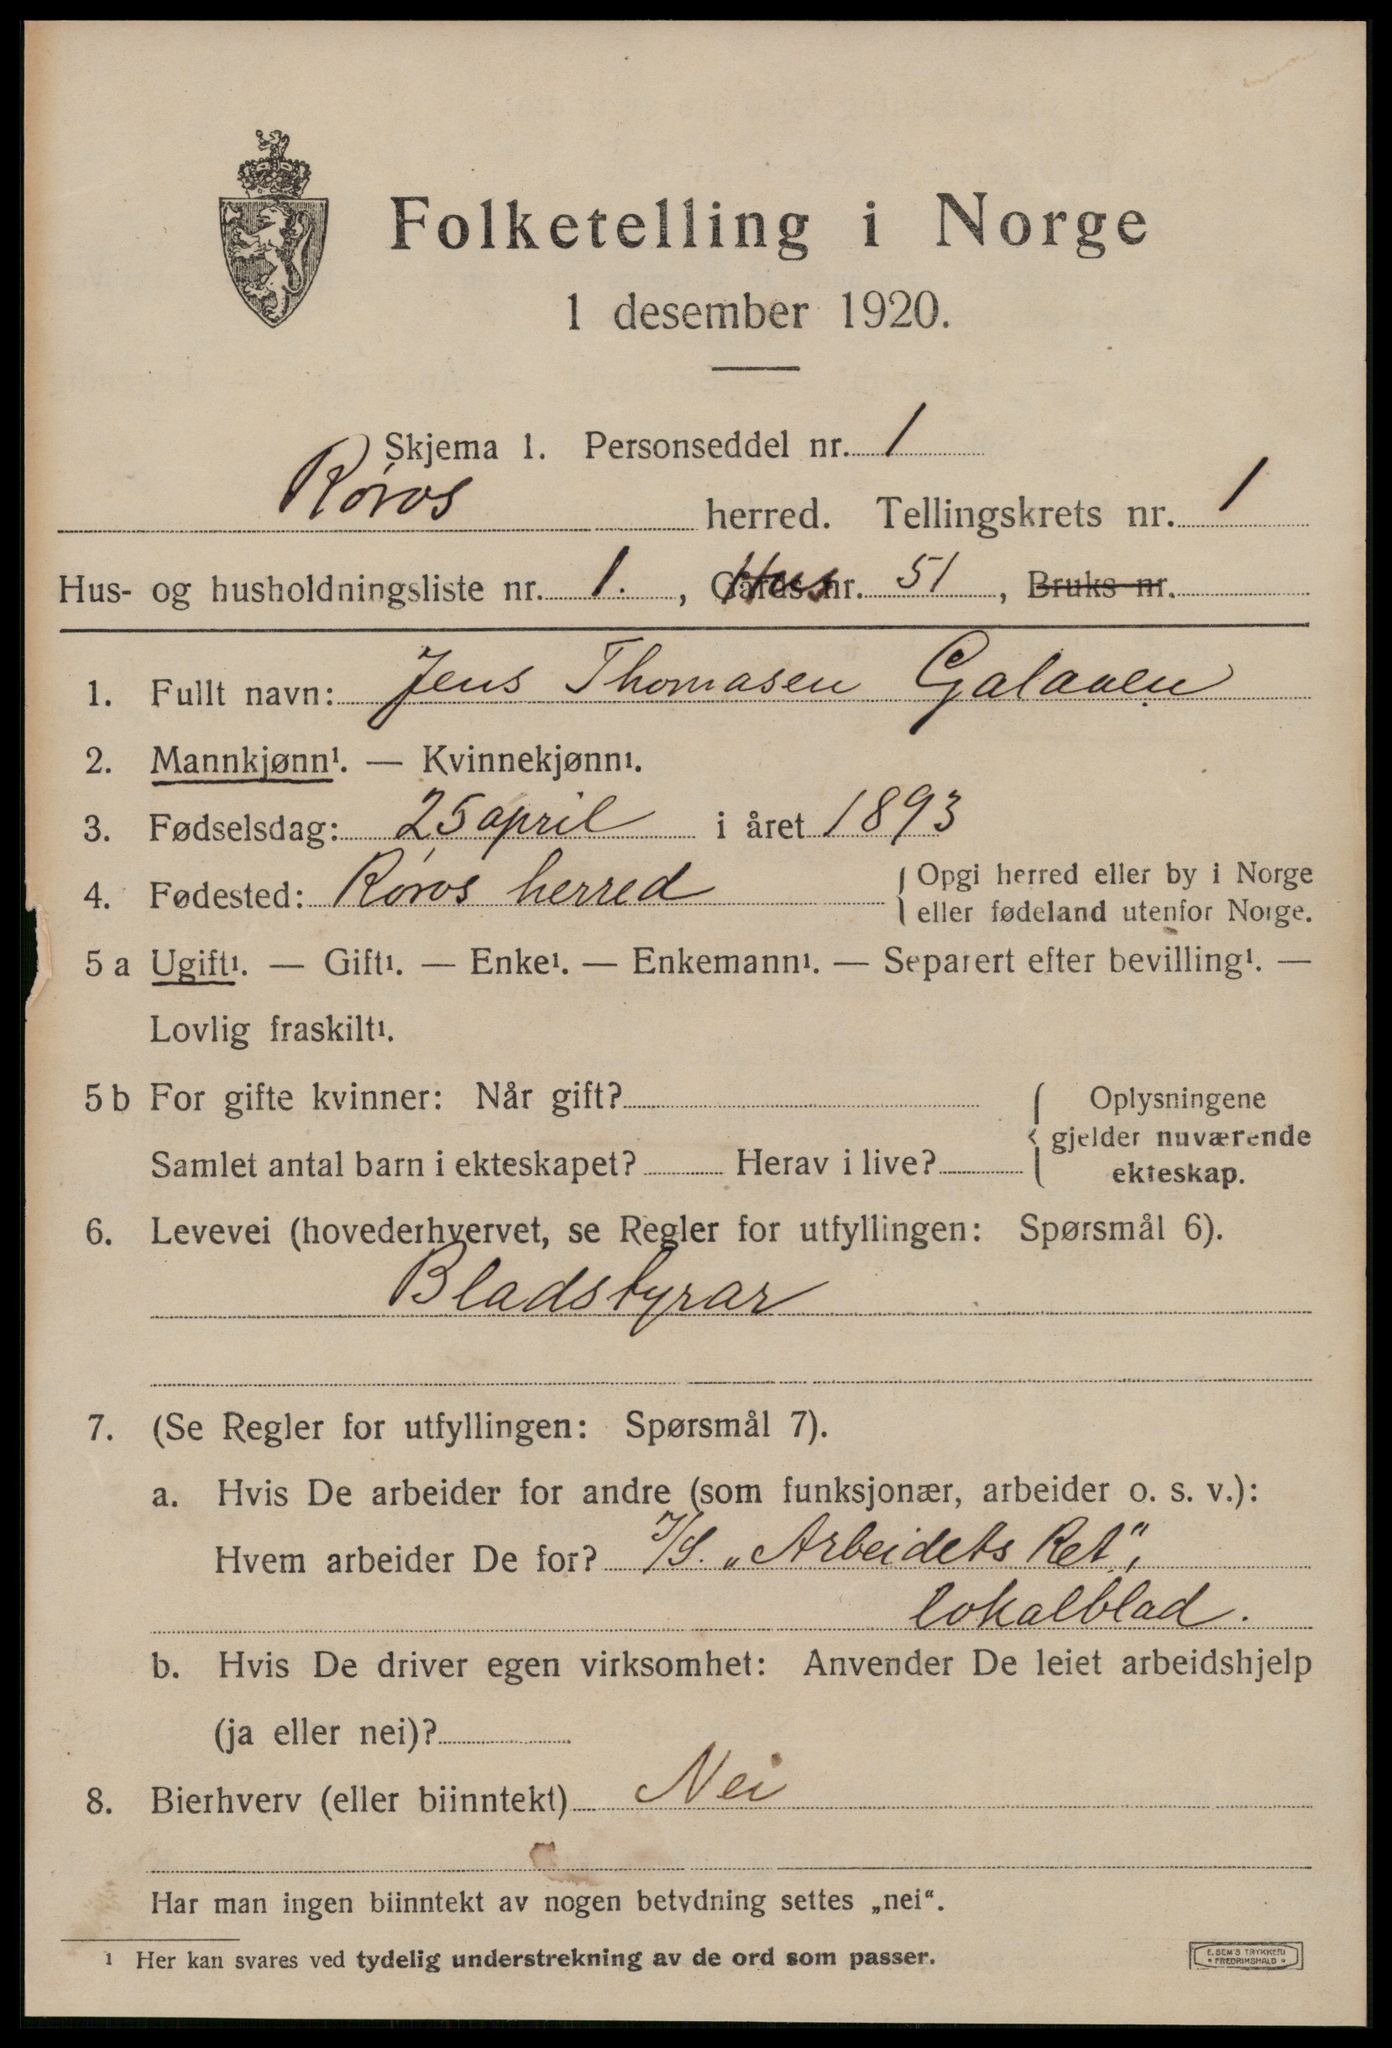 Folketelling i Norge
1 desember 1920.
Skjema 1. Personseddel nr. 1
Røros herred. Tellingskrets nr. 1
Hus- og husholdningsliste nr. 1. , Gårds Hus nr. 51 , Bruks nr.
1. Fullt navn: Jens Thomasen Galaaen
2. Mannkjønn¹. — Kvinnekjønn¹.
3. Fødselsdag: 25 april i året 1893
4. Fødested: Røros herred { Opgi herred eller by i Norge
eller fødeland utenfor Norge.
5 a Ugift¹. — Gift¹. — Enke¹. — Enkemann¹. — Separert efter bevilling¹. —
Lovlig fraskilt¹.
5 b For gifte kvinner: Når gift? { Oplysningene
gjelder nuværende
Samlet antal barn i ekteskapet? Herav i live? ekteskap.
6. Levevei (hovederhvervet, se Regler for utfyllingen: Spørsmål 6).
Bladstyrar
7. (Se Regler for utfyllingen: Spørsmål 7).
a. Hvis De arbeider for andre (som funksjonær, arbeider o. s. v.):
Hvem arbeider De for? I/S. „Arbeidets Ret",
lokalblad.
b. Hvis De driver egen virksomhet: Anvender De leiet arbeidshjelp
(ja eller nei)?
8. Bierhverv (eller biinntekt) Nei
Har man ingen biinntekt av nogen betydning settes „nei“.
1 Her kan svares ved tydelig understrekning av de ord som passer.
E. SEM'S TRYKKERI
* FREDRIKSHALD *